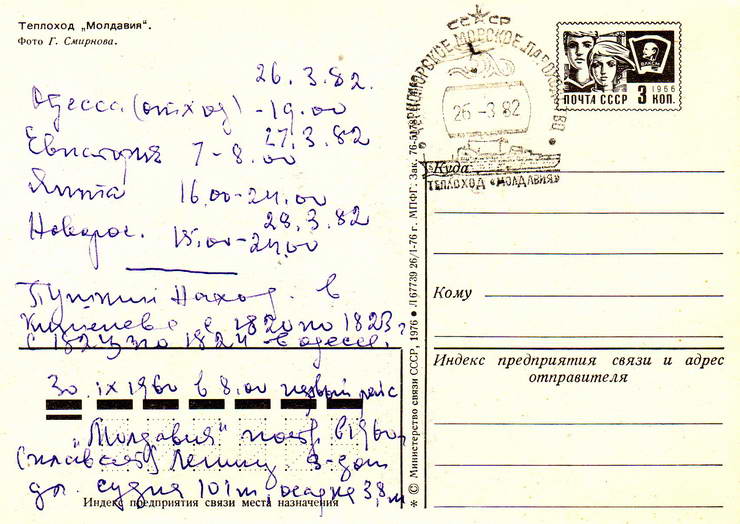 Теплоход „Молдавия".
Фото Г. Смирнова.
26.3.82.
Одесса (отход) -19.00
27.3.82
Евпатория 7-8.00
Ялта 16.00-24.00
28.3.82
Новорос. 15.00-24.00
Пушкин наход. в
Кишенёве с 1820 по 1823 г
с 1823 по 1824 - в Одессе.
30.IX 1960 в 8.00 первый рейс
„Молдавия" постр. в 1960
(плавсост) Ленинц.
дл. судна 101 м, осадка 3,8 м
Индекс предприятия связи места назначения
* © Министерство связи СССР, 1976 • Л 67739 26/I-76 г. МПФГ. Зак. 76-5178
СССР
ЧЕРНОМОРСКОЕ МОРСКОЕ ПАРОХОДСТВО
26-3 82
ТЕПЛОХОД «МОЛДАВИЯ»
ВЛКСМ
1966
ПОЧТА СССР 3 КОП.
Куда
Кому
Индекс предприятия связи и адрес
отправителя